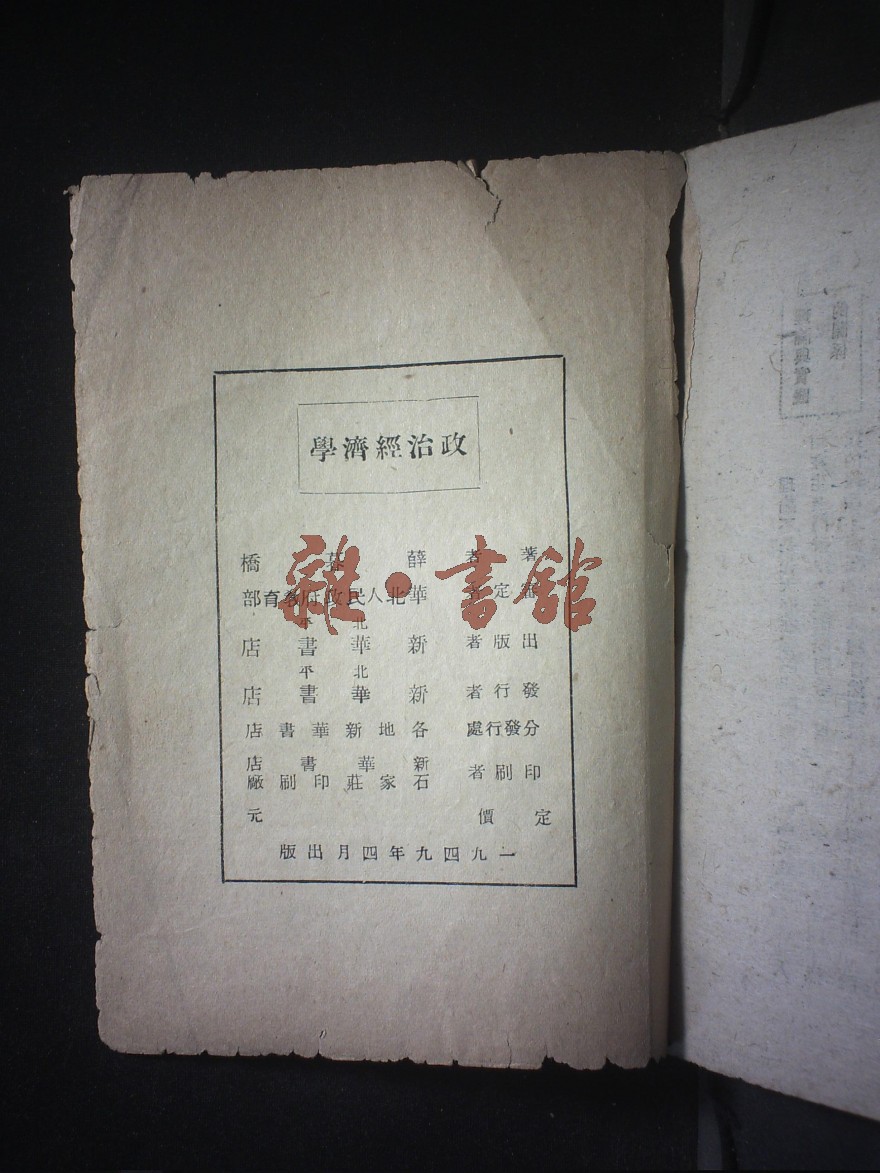 政治經濟學
著者 薛暮橋
審定者 華北人民政府教育部
北平
出版者 新華書店
北平
發行者 新華書店
分發行處 各地新華書店
印刷者 新華書店
石家莊印刷廠
定價 元
一九四九年四月出版
雜·書館